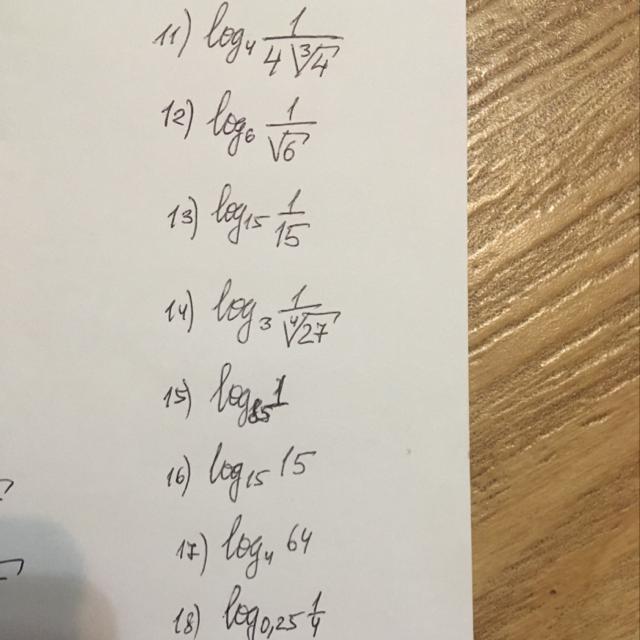 11) log₄ 1/(4∛4)
12) log₆ 1/√6
13) log₁₅ 1/15
14) log₃ 1/∜27
15) log 1
16) log₁₅ 15
17) log₄ 64
18) log₀,₂₅ 1/4